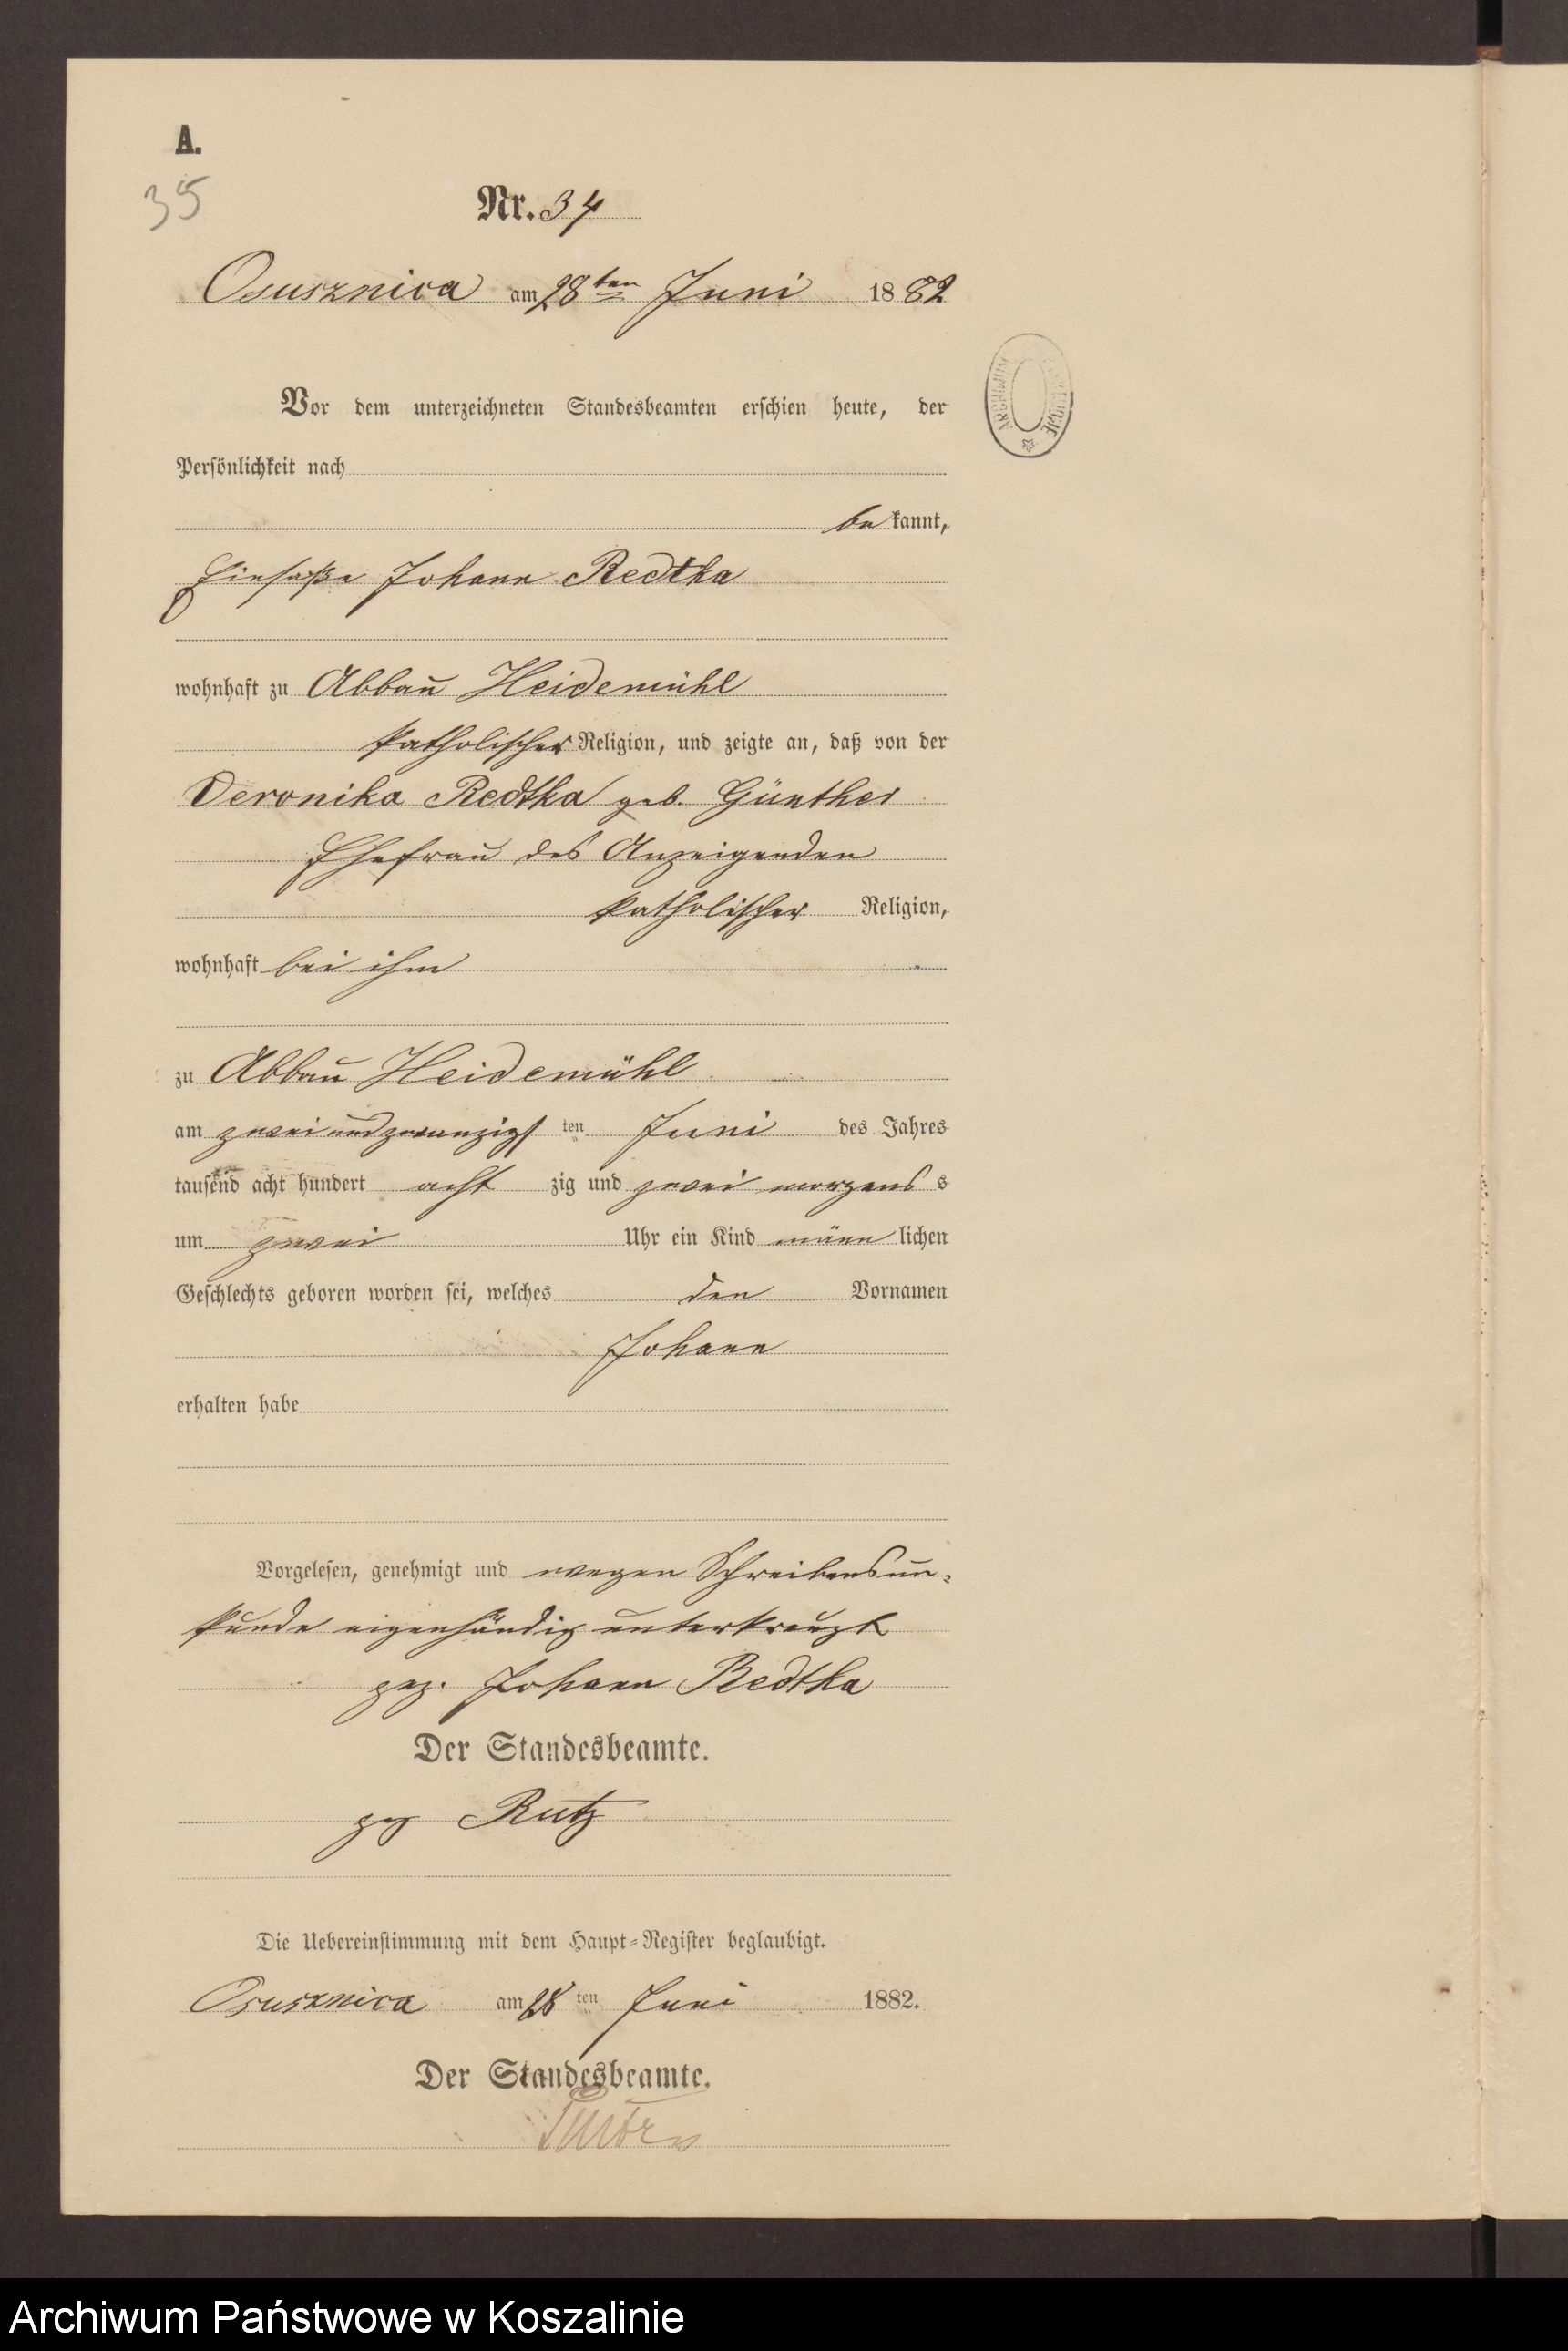 A.
35
Nr. 34
Osusznica am 28ten Juni 1882
ARCHIWUM PAŃSTWOWE
Vor dem unterzeichneten Standesbeamten erschien heute, der
Persönlichkeit nach
be kannt,
Einsaße Johann Redtka
wohnhaft zu Abbau Heidemühl
katholischer Religion, und zeigte an, daß von der
Veronika Redtka geb. Günther
Ehefrau des Anzeigenden
katholischer Religion,
wohnhaft bei ihm
zu Abbau Heidemühl
am zwei und zwanzigsten Juni des Jahres
tausend acht hundert acht zig und zwei morgens s
um zwei Uhr ein Kind männ lichen
Geschlechts geboren worden sei, welches den Vornamen
Johann
erhalten habe
Vorgelesen, genehmigt und wegen Schreibensun-
kunde eigenhändig unterkreuzt
gez. Johann Redtka
Der Standesbeamte.
gez Rutz
Die Uebereinstimmung mit dem Haupt-Register beglaubigt.
Osusznica am 28 ten Juni 1882.
Der Standesbeamte.
Archiwum Państwowe w Koszalinie